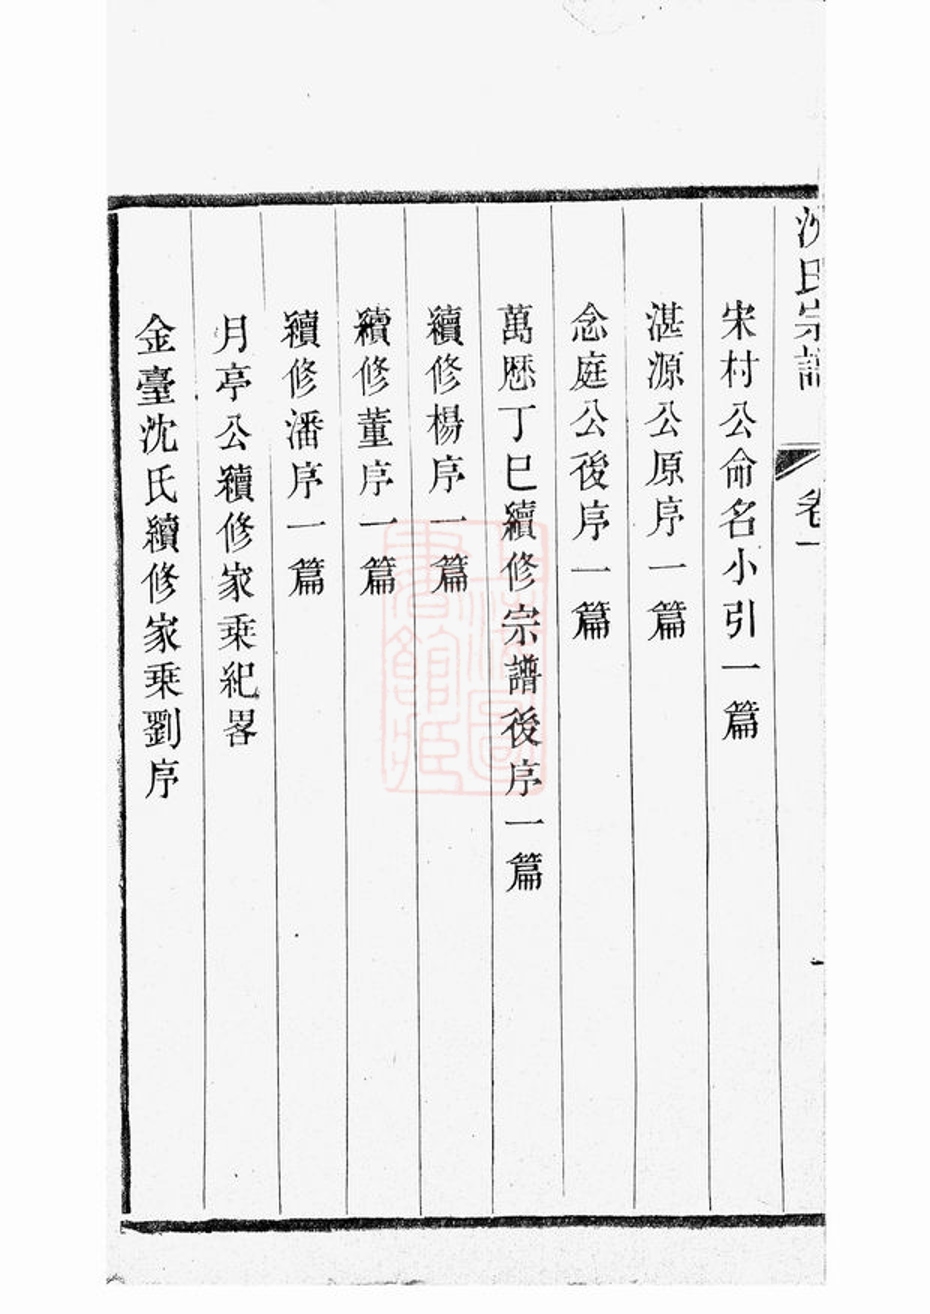 沈氏宗譜 卷一 一
宋村公命名小引一篇
湛源公原序一篇
念庭公後序一篇
萬厯丁巳續修宗譜後序一篇
續修楊序一篇
續修董序一篇
續修潘序一篇
月亭公續修家乗紀畧
金臺沈氏續修家乗劉序